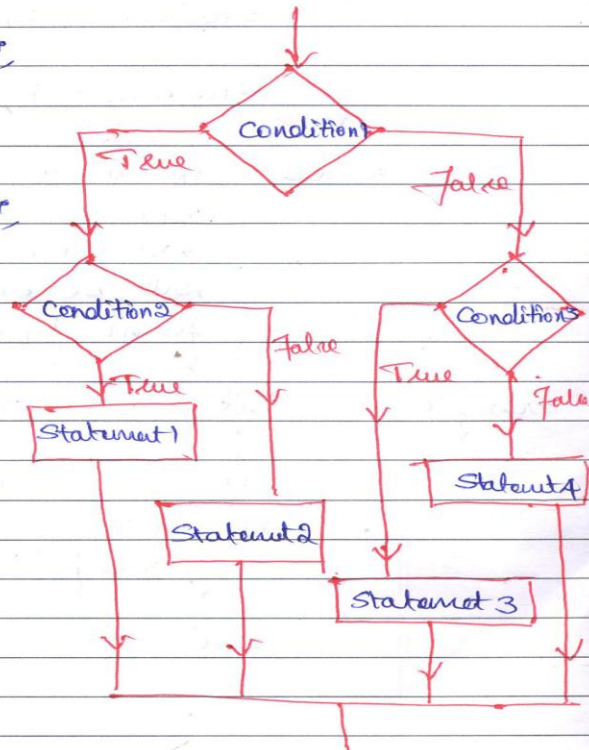 Condition1
True
False
Condition2
Condition3
False
True
True
False
Statement1
Statement4
Statement2
Statement 3